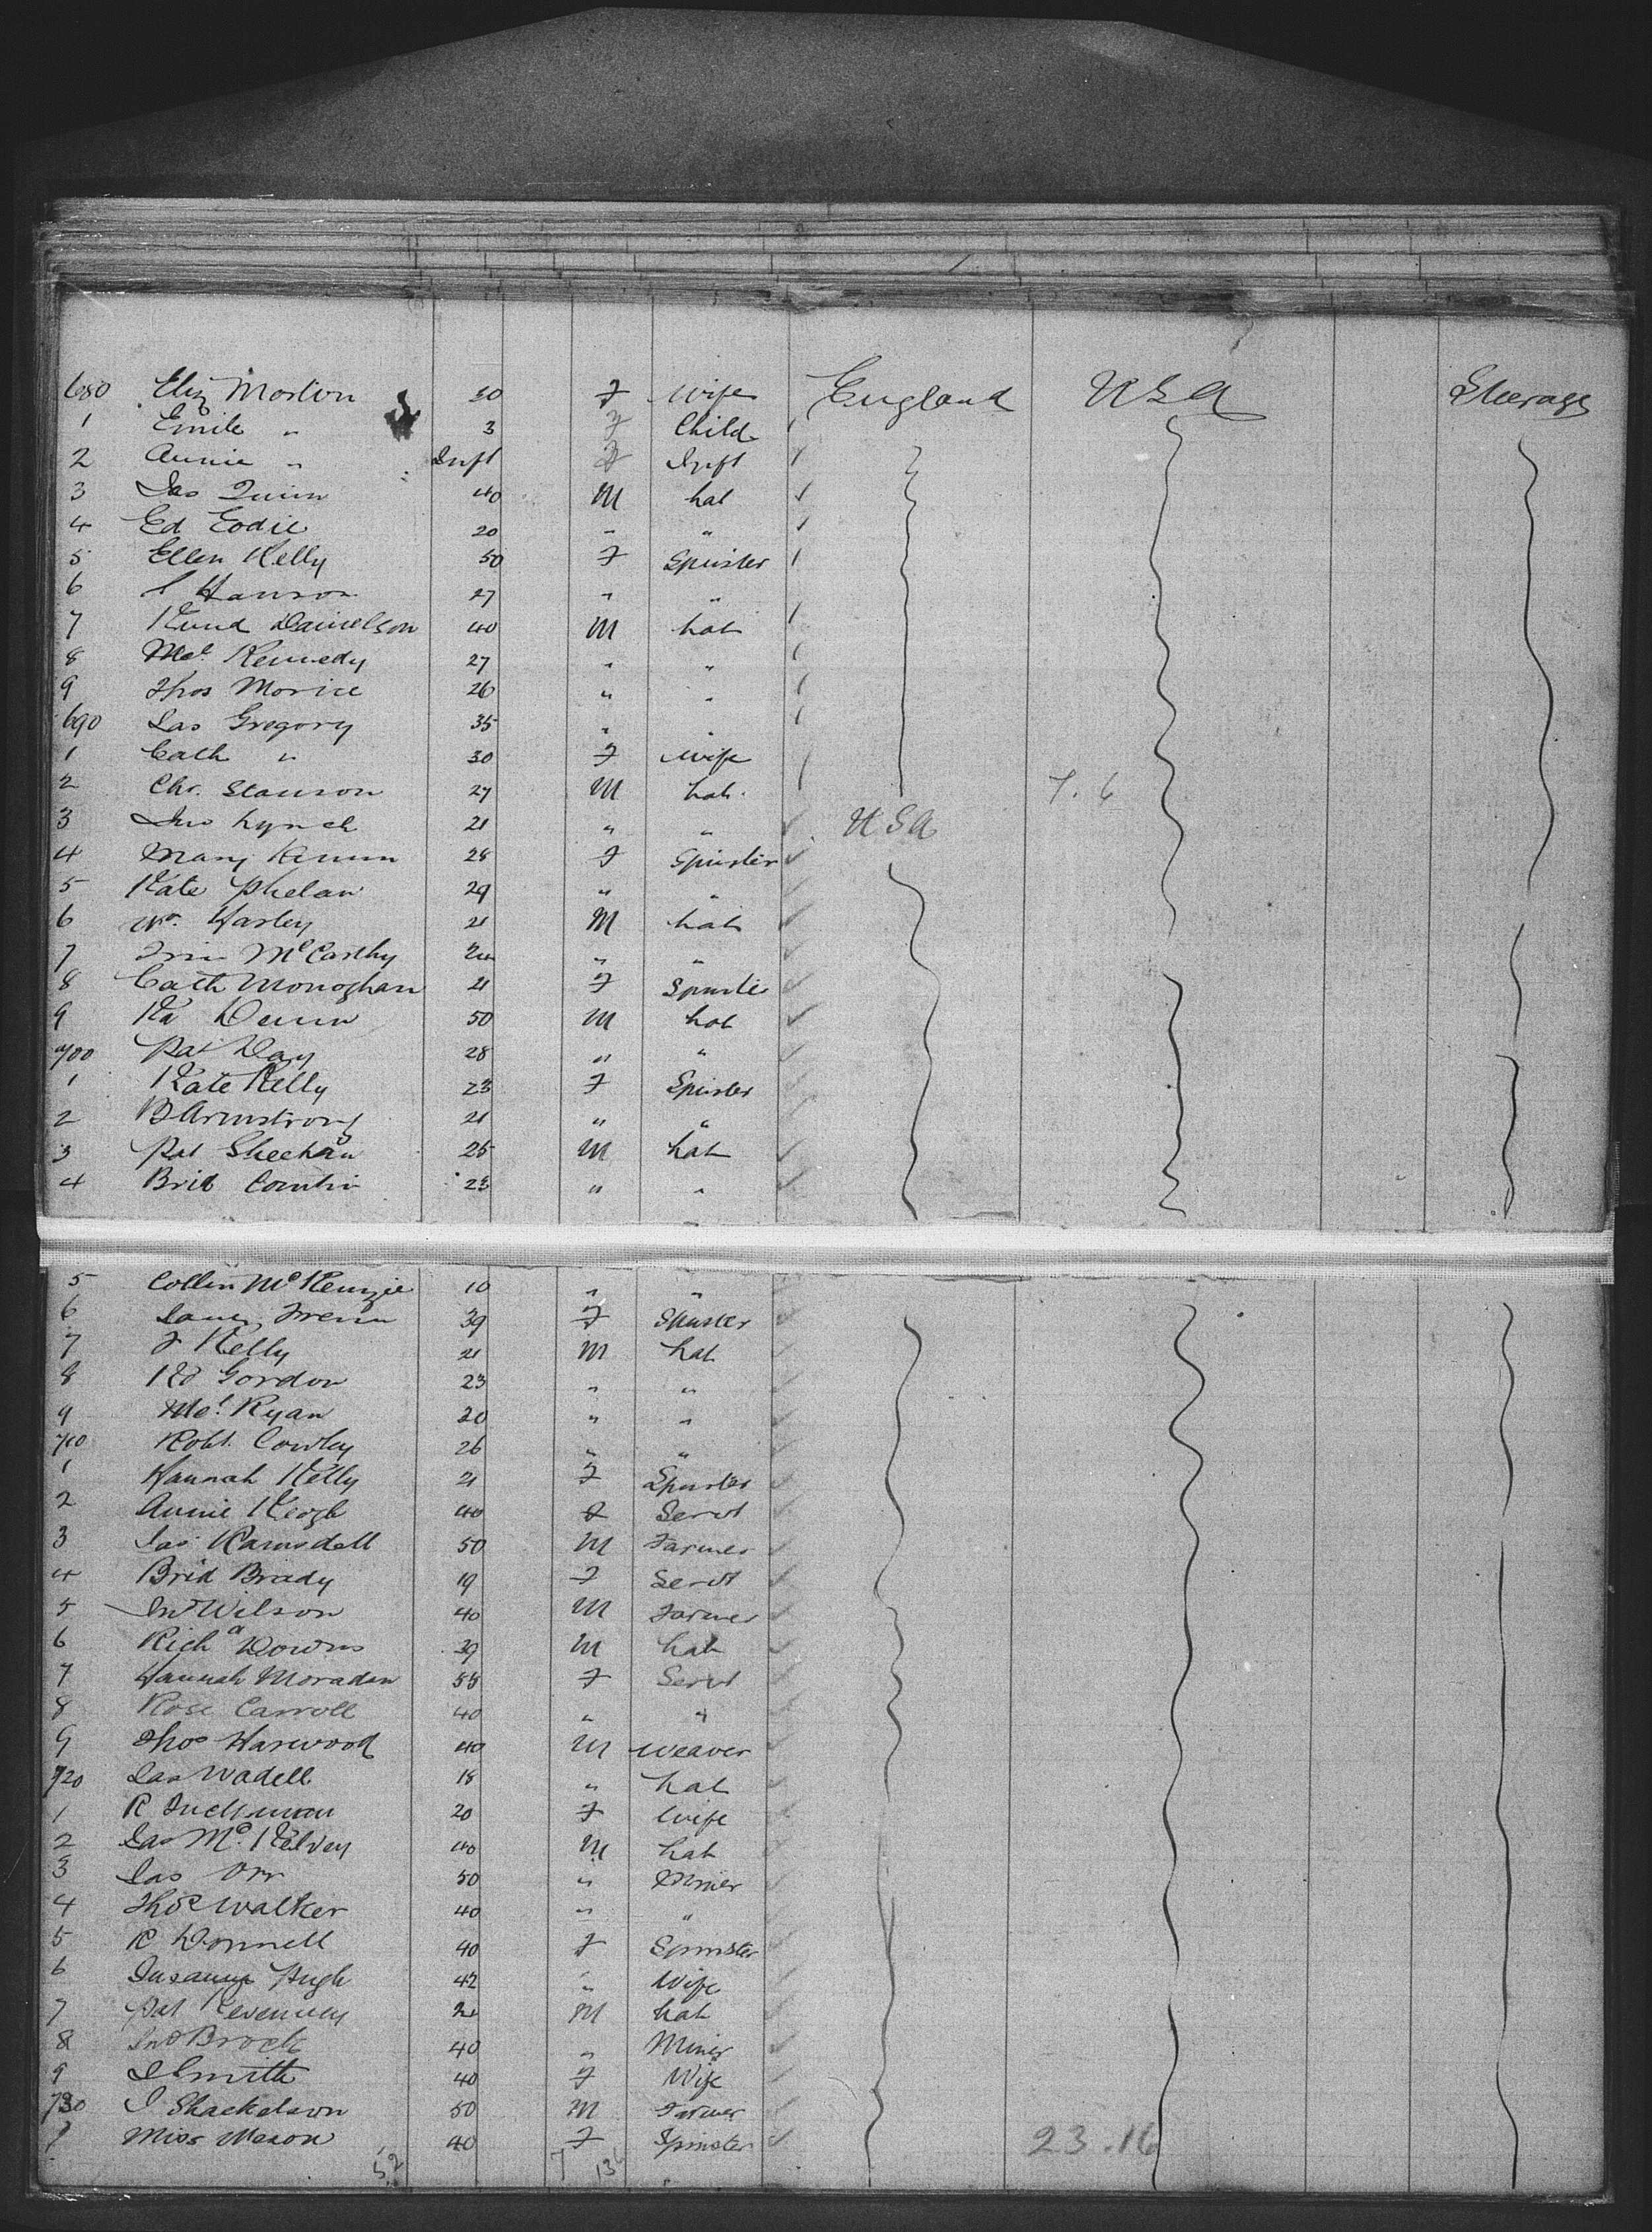 680 Eliz Morton 30 F Wife England USA Steerage
1 Emile " 3 F Child
2 Annie " Inft F Inft
3 Jas Quinn 40 M Lab
4 Ed Eodie 20 " "
5 Ellen Kelly 50 F Spinster
6 Hanson 27 " "
7 Knud Danielson 40 M Lab
8 Mcl Kennedy 27 " "
9 Thos Morice 26 " "
690 Jas Gregory 35 " "
1 Cath " 30 F Wife
2 Chr. Stanson 27 M Lab. 7. 6
3 Jno Lynch 21 " " USA
4 Mary 28 F Spinster
5 Kate Phelan 29 " "
6 Wm. Harley 21 M Lab
7 McCarthy " "
8 Cath Monoghan 21 F Spinster
9 Dunn 50 M Lab
700 Pat Day 28 " "
1 Kate Kelly 23 F Spinster
2 B Armstrong 21 " "
3 Pat Sheehan 25 M Lab
4 Brid 23 " "
5 Collin McKenzie 10 " "
6 39 F Spinster
7 J Kelly 21 M Lab
8 Gordon 23 " "
9 Mcl Ryan 20 " "
710 Robt. Cowley 26 " "
1 Hannah Kelly 21 F Spinster
2 Annie Keogh 40 F Servt
3 Jas Ramsdell 50 M Farmer
4 Brid Brady 19 F Servt
5 Jno Wilson 40 M Farmer
6 Richd Downs 39 M Lab
7 Hannah Moraden 55 F Servt
8 Rose Carroll 40 " "
9 Thos Harwood 40 M Weaver
720 Jas Wadell 18 " Lab
1 R 20 F Wife
2 Jas McKelvey 40 M Lab
3 Jas Orr 50 " Miner
4 Thos Walker 40 " "
5 R Donnell 40 F Spinster
6 Hugh 42 " Wife
7 Pat M Lab
8 Jno Brock 40 " Miner
9 Smith 40 F Wife
730 J Shackelson 50 M Farmer
1 Miss Mason 40 F Spinster 23.16
52 7 13